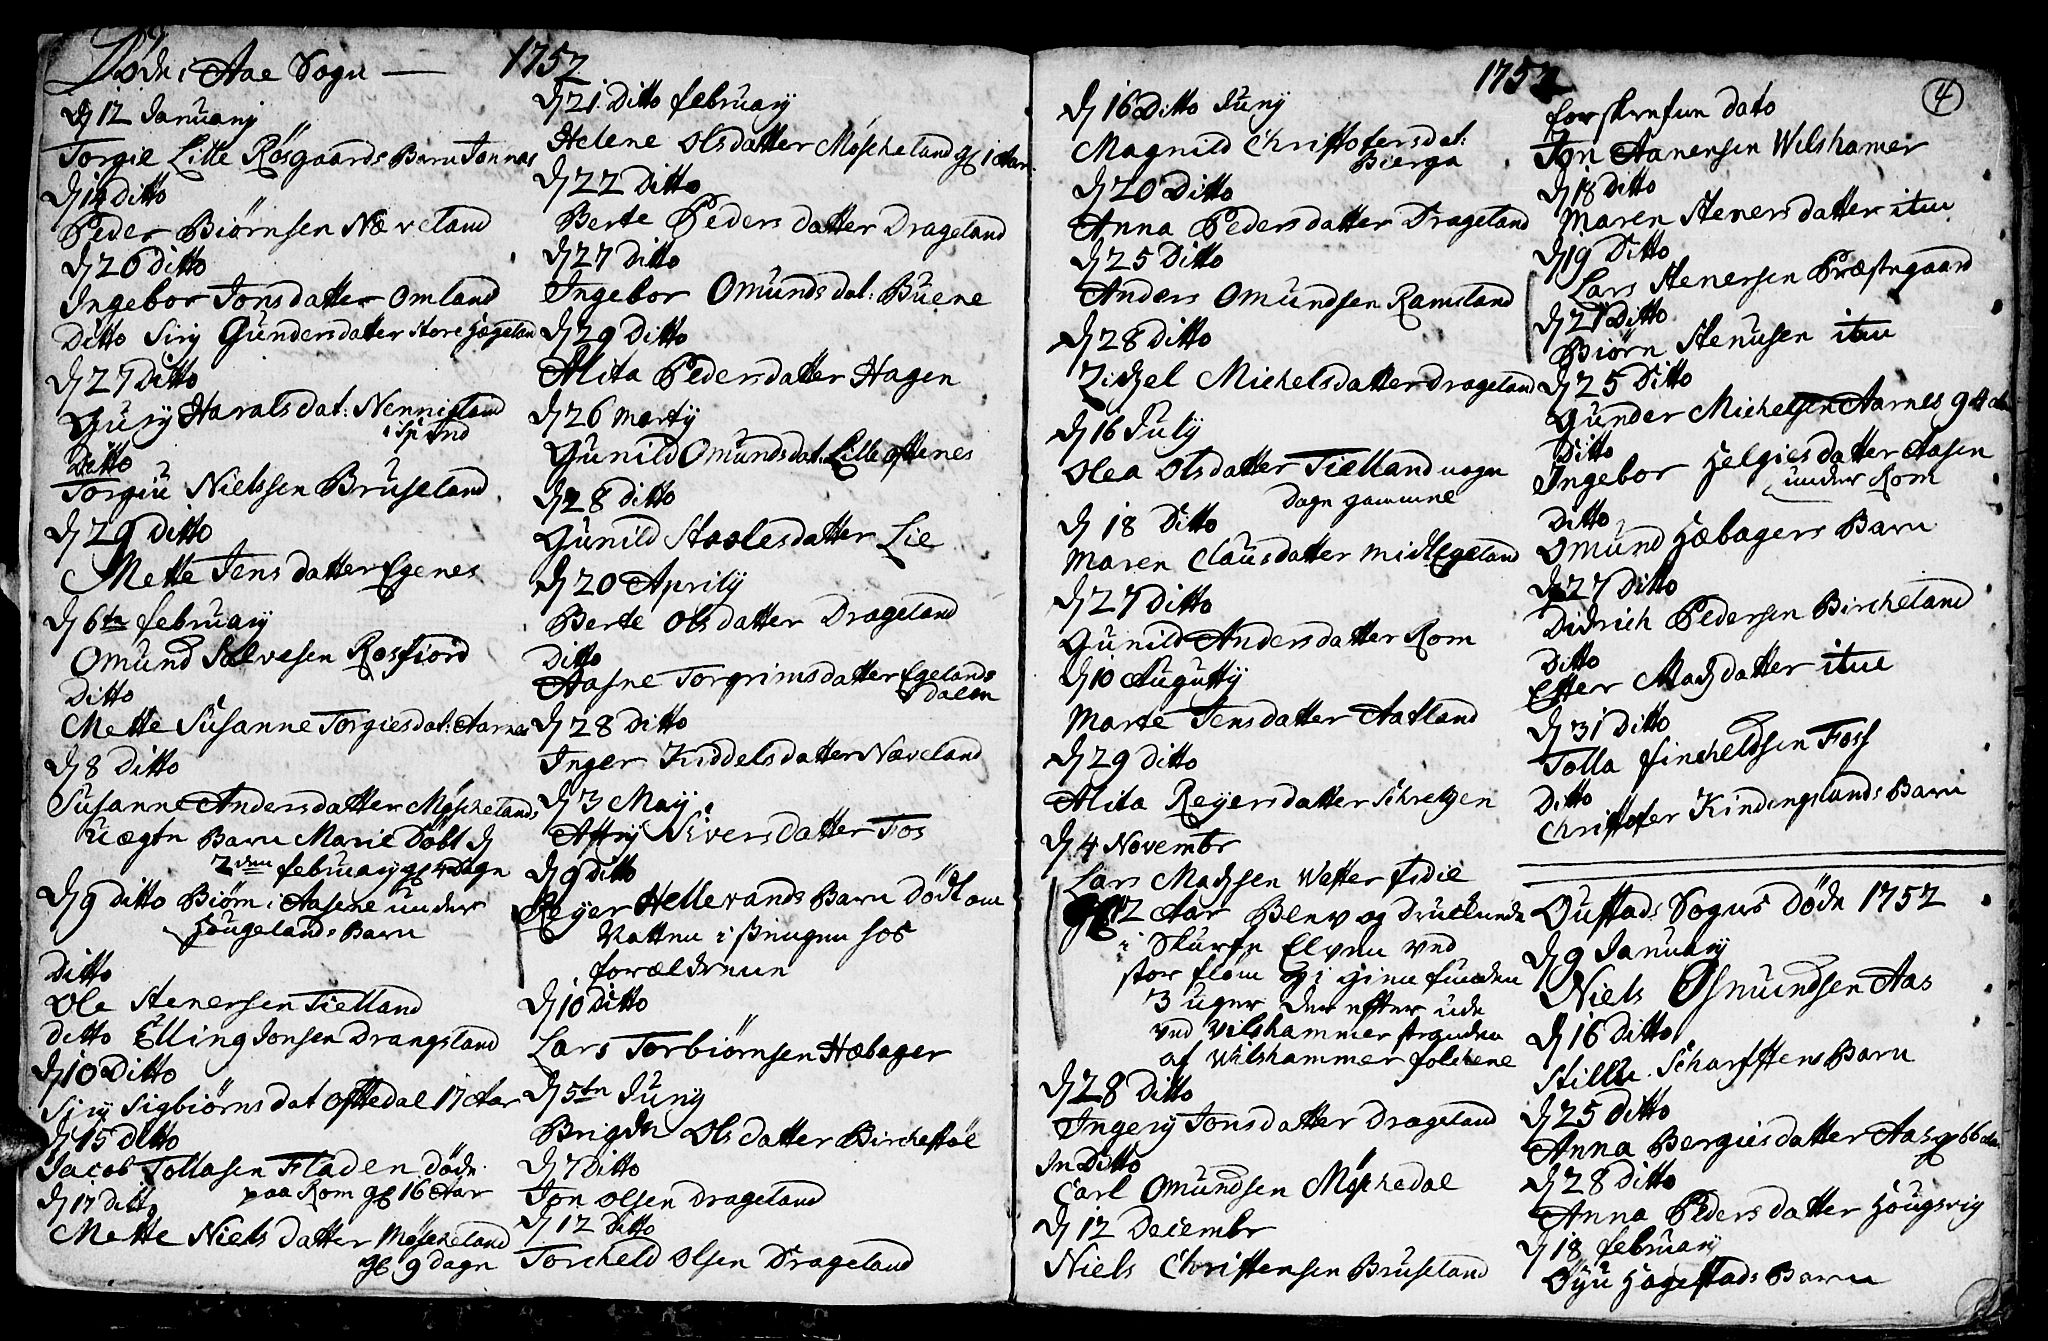 Døde i Aae Sogn — 1752
D 12 Januarij
Torgie Lille Røsgaards Barn Jonnas
D 14 Ditto
Peder Biørnsen Næveland
D 26 Ditto
Ingebor Jonsdatter Omland
Ditto Sirj Gundersdatter Store Høgeland
D 27 Ditto
Gury Haralsdat: Nennistand
i Spind
Ditto
Torgiu Nielssen Bruseland
D 29 Ditto
Mette Jensdatter Egenes
D 6te februarij
Omund Salvesen Rosfiord
Ditto
Mette Susanne Torgiesdat: Aarnes
D 8 Ditto
Susanne Andersdatter Møskelands
uægte Barn Marie Døbt D
2den februarij gl 4 Dage
D 9 ditto Biørn i Aasene under
Høugelands Barn
Ditto
Ole Stenersen Tielland
ditto Elling Jonsen Drangsland
D 10 Ditto
Sirij Sigbiørnsdat Oftedal 17 Aar
D 15 Ditto
Jacob Tollasen Fladen døde
paa Rom gl 16 Aar
D 17 ditto
Mette Nielsdatter Møskeland
gl 9 dage
D 21 Ditto februarij
Helene Olsdatter Møskeland gl 1 Aar
D 22 Ditto
Berte Pedersdatter Drageland
D 27 Ditto
Ingebor Omundsdat: Buene
D 29 Ditto
Alita Pedersdatter Hagen
D 26 Martij
Gunild Omundsdat: Lille Oftenes
D 28 ditto
Gunild Staalesdatter Lie
D 20 Aprilij
Berte Olsdatter Drageland
Ditto
Aasne Torgrimsdatter Egelands
dalen
D 28 Ditto
Inger Kiddelsdatter Næveland
D 3 Maij
Astrj Siversdatter Fos
D 9 ditto
Reyer Hellevands Barn Dødt om
Natten i Sengen hos
forældrene
D 10 Ditto
Lars Torbiørnsen Hæbager
D 5te Junij
Brigde Olsdatter Birchestøl
D 7 Ditto
Jon Olsen Drageland
D 12 Ditto
Torcheld Olsen Drageland
1752
D 16 Ditto Junij
Magnild Christofersdat:
Bierga
D 20 Ditto
Anna Pedersdatter Drageland
D 25 Ditto
Anders Omundsen Ramsland
D 28 Ditto
Zidzel Michelsdatter Drageland
D 16 Julij
Olea Olsdatter Tielland nogle
Dage gammel
D 18 Ditto
Maren Clausdatter Midt Egeland
D 27 Ditto
Gunild Andersdatter Rom
D 10 Augustij
Marte Jensdatter Aatland
D 29 Ditto
Alita Reyersdatter Skretzen
D 4 Novembr
Lars Madsen Wester Eidie
gl 12 Aar Blev og Druknede
i Skurfe Elven ved
stor flom og igien funden
3 uger der efter ude
ved Vilshammer stranden
af Wilshammer folchene
D 28 Ditto
Ingerj Jonsdatter Drageland
In Ditto
Carl Omundsen Møskedal
D 12 Decembr
Niels Christensen Bruseland
4
forskrefne dato
Jon Aanensen Wilshamer
D 18 Ditto
Maren Stenersdatter itue
D 19 Ditto
Lars Stenersen Præstegaard
D 21 Ditto
Biørn Stenusen itue
D 25 Ditto
Gunder Michelsen Aarnes
Ditto
Ingebor Helgiesdatter Aasen
under Rom
Ditto
Omund Hæbagers Barn
D 27 Ditto
Didrich Pedersen Bircheland
Ditto
Ester Madsdatter itue
D 31 Ditto
Tolla fincheldsen Foss
Ditto
Christofer Kindingslands Barn
Oustads Sogns døde 1752
D 9 Januarij
Niels Osmundsen Aas
D 16 Ditto
Stille Scharfstens Barn
D 25 Ditto
Anna Bergiesdatter Aas gl 66 Aar
D 28 Ditto
Anna Pedersdatter Høugsvig
D 18 februarij
Øyu Hagestads Barn